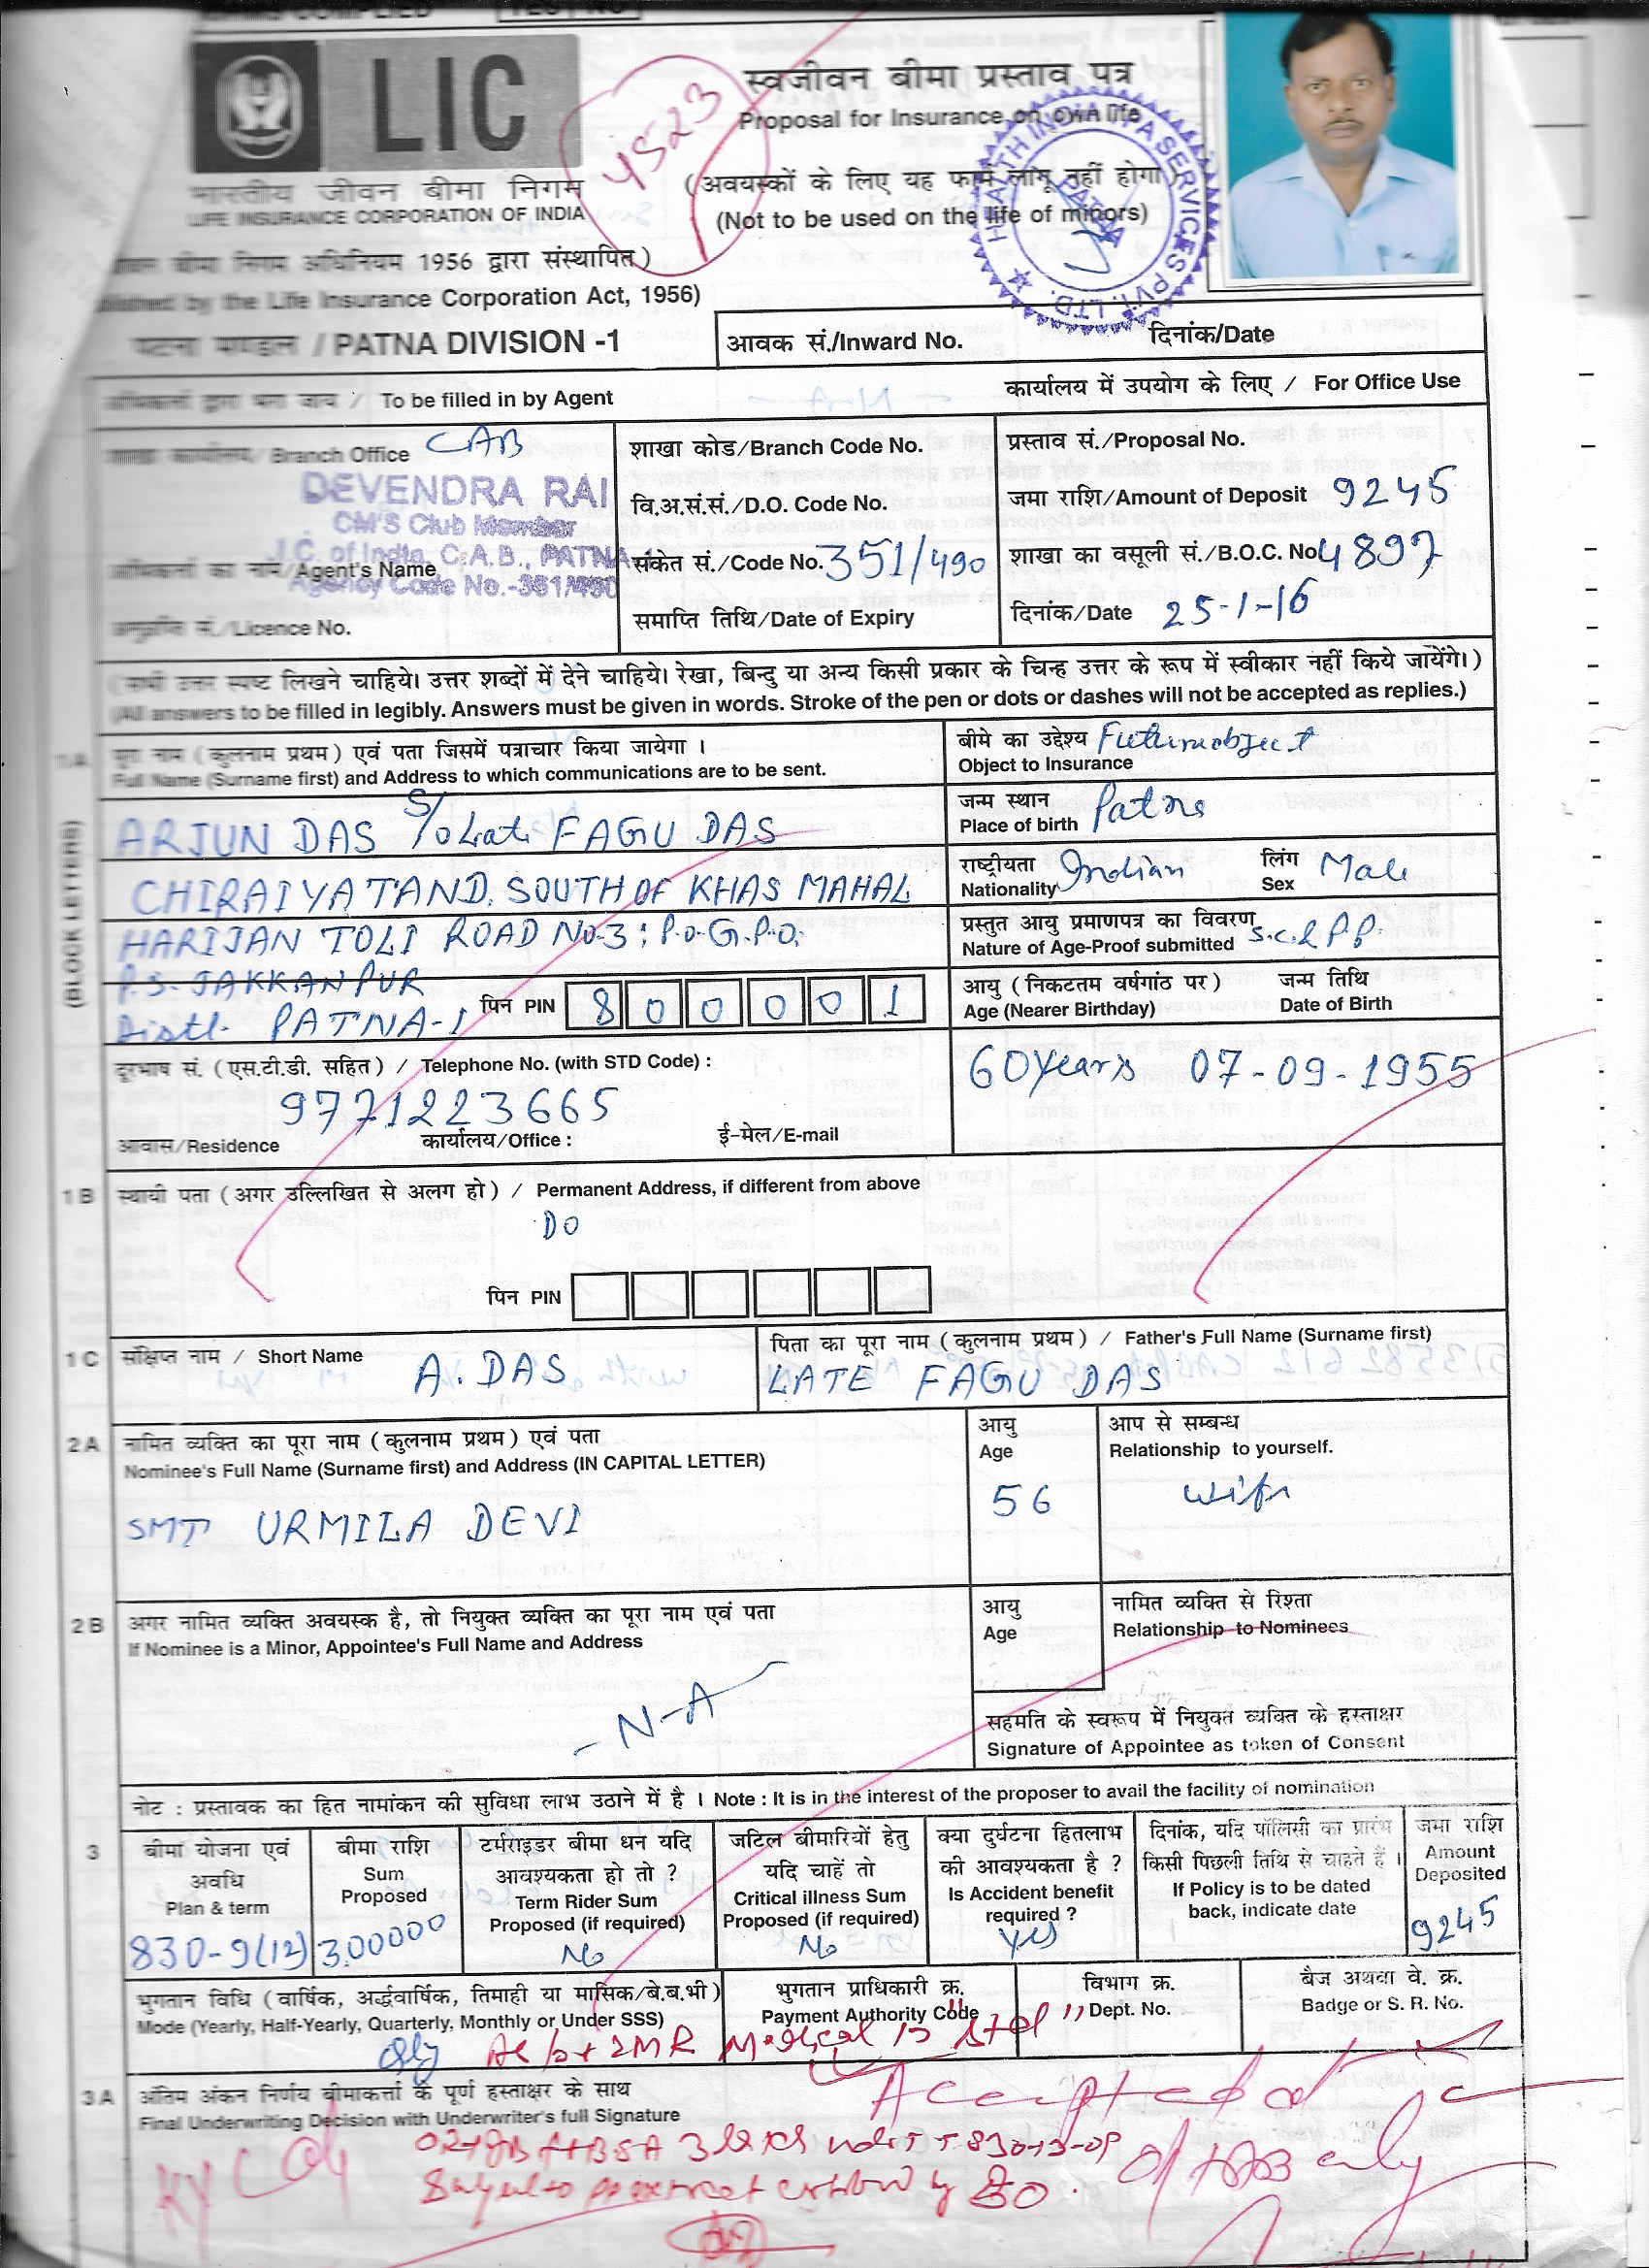 LIC
भारतीय जीवन बीमा निगम
LIFE INSURANCE CORPORATION OF INDIA
बीमा निगम अधिनियम 1956 द्वारा संस्थापित)
by the Life Insurance Corporation Act, 1956)
पटना मण्डल / PATNA DIVISION -1
4523
स्वजीवन बीमा प्रस्ताव पत्र
Proposal for Insurance on own life
(अवयस्कों के लिए यह फार्म लागू नहीं होगा)
(Not to be used on the life of minors)
HEALTH INDIA TPA SERVICES PVT. LTD.
PATNA
आवक सं./Inward No.
दिनांक/Date
To be filled in by Agent
कार्यालय में उपयोग के लिए / For Office Use
Branch Office CAB
DEVENDRA RAI
CM'S Club Member
L.I.C. of India, C.A.B., PATNA-1
Agency Code No.-351/490
अभिकर्ता का नाम/Agent's Name
अनुज्ञप्ति सं./Licence No.
शाखा कोड/Branch Code No.
वि.अ.सं.सं./D.O. Code No.
संकेत सं./Code No. 351/490
समाप्ति तिथि/Date of Expiry
प्रस्ताव सं./Proposal No.
जमा राशि/Amount of Deposit 9245
शाखा का वसूली सं./B.O.C. No 4897
दिनांक/Date 25-1-16
(सभी उत्तर स्पष्ट लिखने चाहिये। उत्तर शब्दों में देने चाहिये। रेखा, बिन्दु या अन्य किसी प्रकार के चिन्ह उत्तर के रूप में स्वीकार नहीं किये जायेंगे।)
(All answers to be filled in legibly. Answers must be given in words. Stroke of the pen or dots or dashes will not be accepted as replies.)
1.A
पूरा नाम (कुलनाम प्रथम) एवं पता जिसमें पत्राचार किया जायेगा ।
Full Name (Surname first) and Address to which communications are to be sent.
(BLOCK LETTERS)
ARJUN DAS S/o Late FAGU DAS
CHIRAIYATAND, SOUTH OF KHAS MAHAL
HARIJAN TOLI ROAD NO-3: P.O-G.P.O.
P.S-JAKKANPUR
Distt- PATNA-1 पिन PIN 8 0 0 0 0 1
बीमे का उद्देश्य
Object to Insurance
जन्म स्थान
Place of birth Patna
राष्ट्रीयता
Nationality Indian
लिंग
Sex Male
प्रस्तुत आयु प्रमाणपत्र का विवरण
Nature of Age-Proof submitted
आयु (निकटतम वर्षगांठ पर)
Age (Nearer Birthday)
जन्म तिथि
Date of Birth
60 years 07-09-1955
दूरभाष सं. (एस.टी.डी. सहित) / Telephone No. (with STD Code) :
9771223665
आवास/Residence कार्यालय/Office : ई-मेल/E-mail
1 B
स्थायी पता (अगर उल्लिखित से अलग हो) / Permanent Address, if different from above
DO
पिन PIN
1 C
संक्षिप्त नाम / Short Name A. DAS
पिता का पूरा नाम (कुलनाम प्रथम) / Father's Full Name (Surname first)
LATE FAGU DAS
2 A
नामित व्यक्ति का पूरा नाम (कुलनाम प्रथम) एवं पता
Nominee's Full Name (Surname first) and Address (IN CAPITAL LETTER)
SMT URMILA DEVI
आयु
Age
56
आप से सम्बन्ध
Relationship to yourself.
wife
2 B
अगर नामित व्यक्ति अवयस्क है, तो नियुक्त व्यक्ति का पूरा नाम एवं पता
If Nominee is a Minor, Appointee's Full Name and Address
- N-A
आयु
Age
नामित व्यक्ति से रिश्ता
Relationship to Nominees
सहमति के स्वरूप में नियुक्त व्यक्ति के हस्ताक्षर
Signature of Appointee as token of Consent
नोट : प्रस्तावक का हित नामांकन की सुविधा लाभ उठाने में है । Note : It is in the interest of the proposer to avail the facility of nomination
3
बीमा योजना एवं
अवधि
Plan & term
830-9(12)
बीमा राशि
Sum
Proposed
300000
टर्मराइडर बीमा धन यदि
आवश्यकता हो तो ?
Term Rider Sum
Proposed (if required)
No
जटिल बीमारियों हेतु
यदि चाहें तो
Critical illness Sum
Proposed (if required)
No
क्या दुर्घटना हितलाभ
की आवश्यकता है ?
Is Accident benefit
required ?
Yes
दिनांक, यदि पॉलिसी का प्रारंभ
किसी पिछली तिथि से चाहते हैं ।
If Policy is to be dated
back, indicate date
जमा राशि
Amount
Deposited
9245
भुगतान विधि (वार्षिक, अर्द्धवार्षिक, तिमाही या मासिक/बे.ब.भी)
Mode (Yearly, Half-Yearly, Quarterly, Monthly or Under SSS)
भुगतान प्राधिकारी क्र.
Payment Authority Code
विभाग क्र.
Dept. No.
बैज अथवा वे. क्र.
Badge or S. R. No.
3 A
अंतिम अंकन निर्णय बीमाकर्त्ता के पूर्ण हस्ताक्षर के साथ
Final Underwriting Decision with Underwriter's full Signature
Accepted